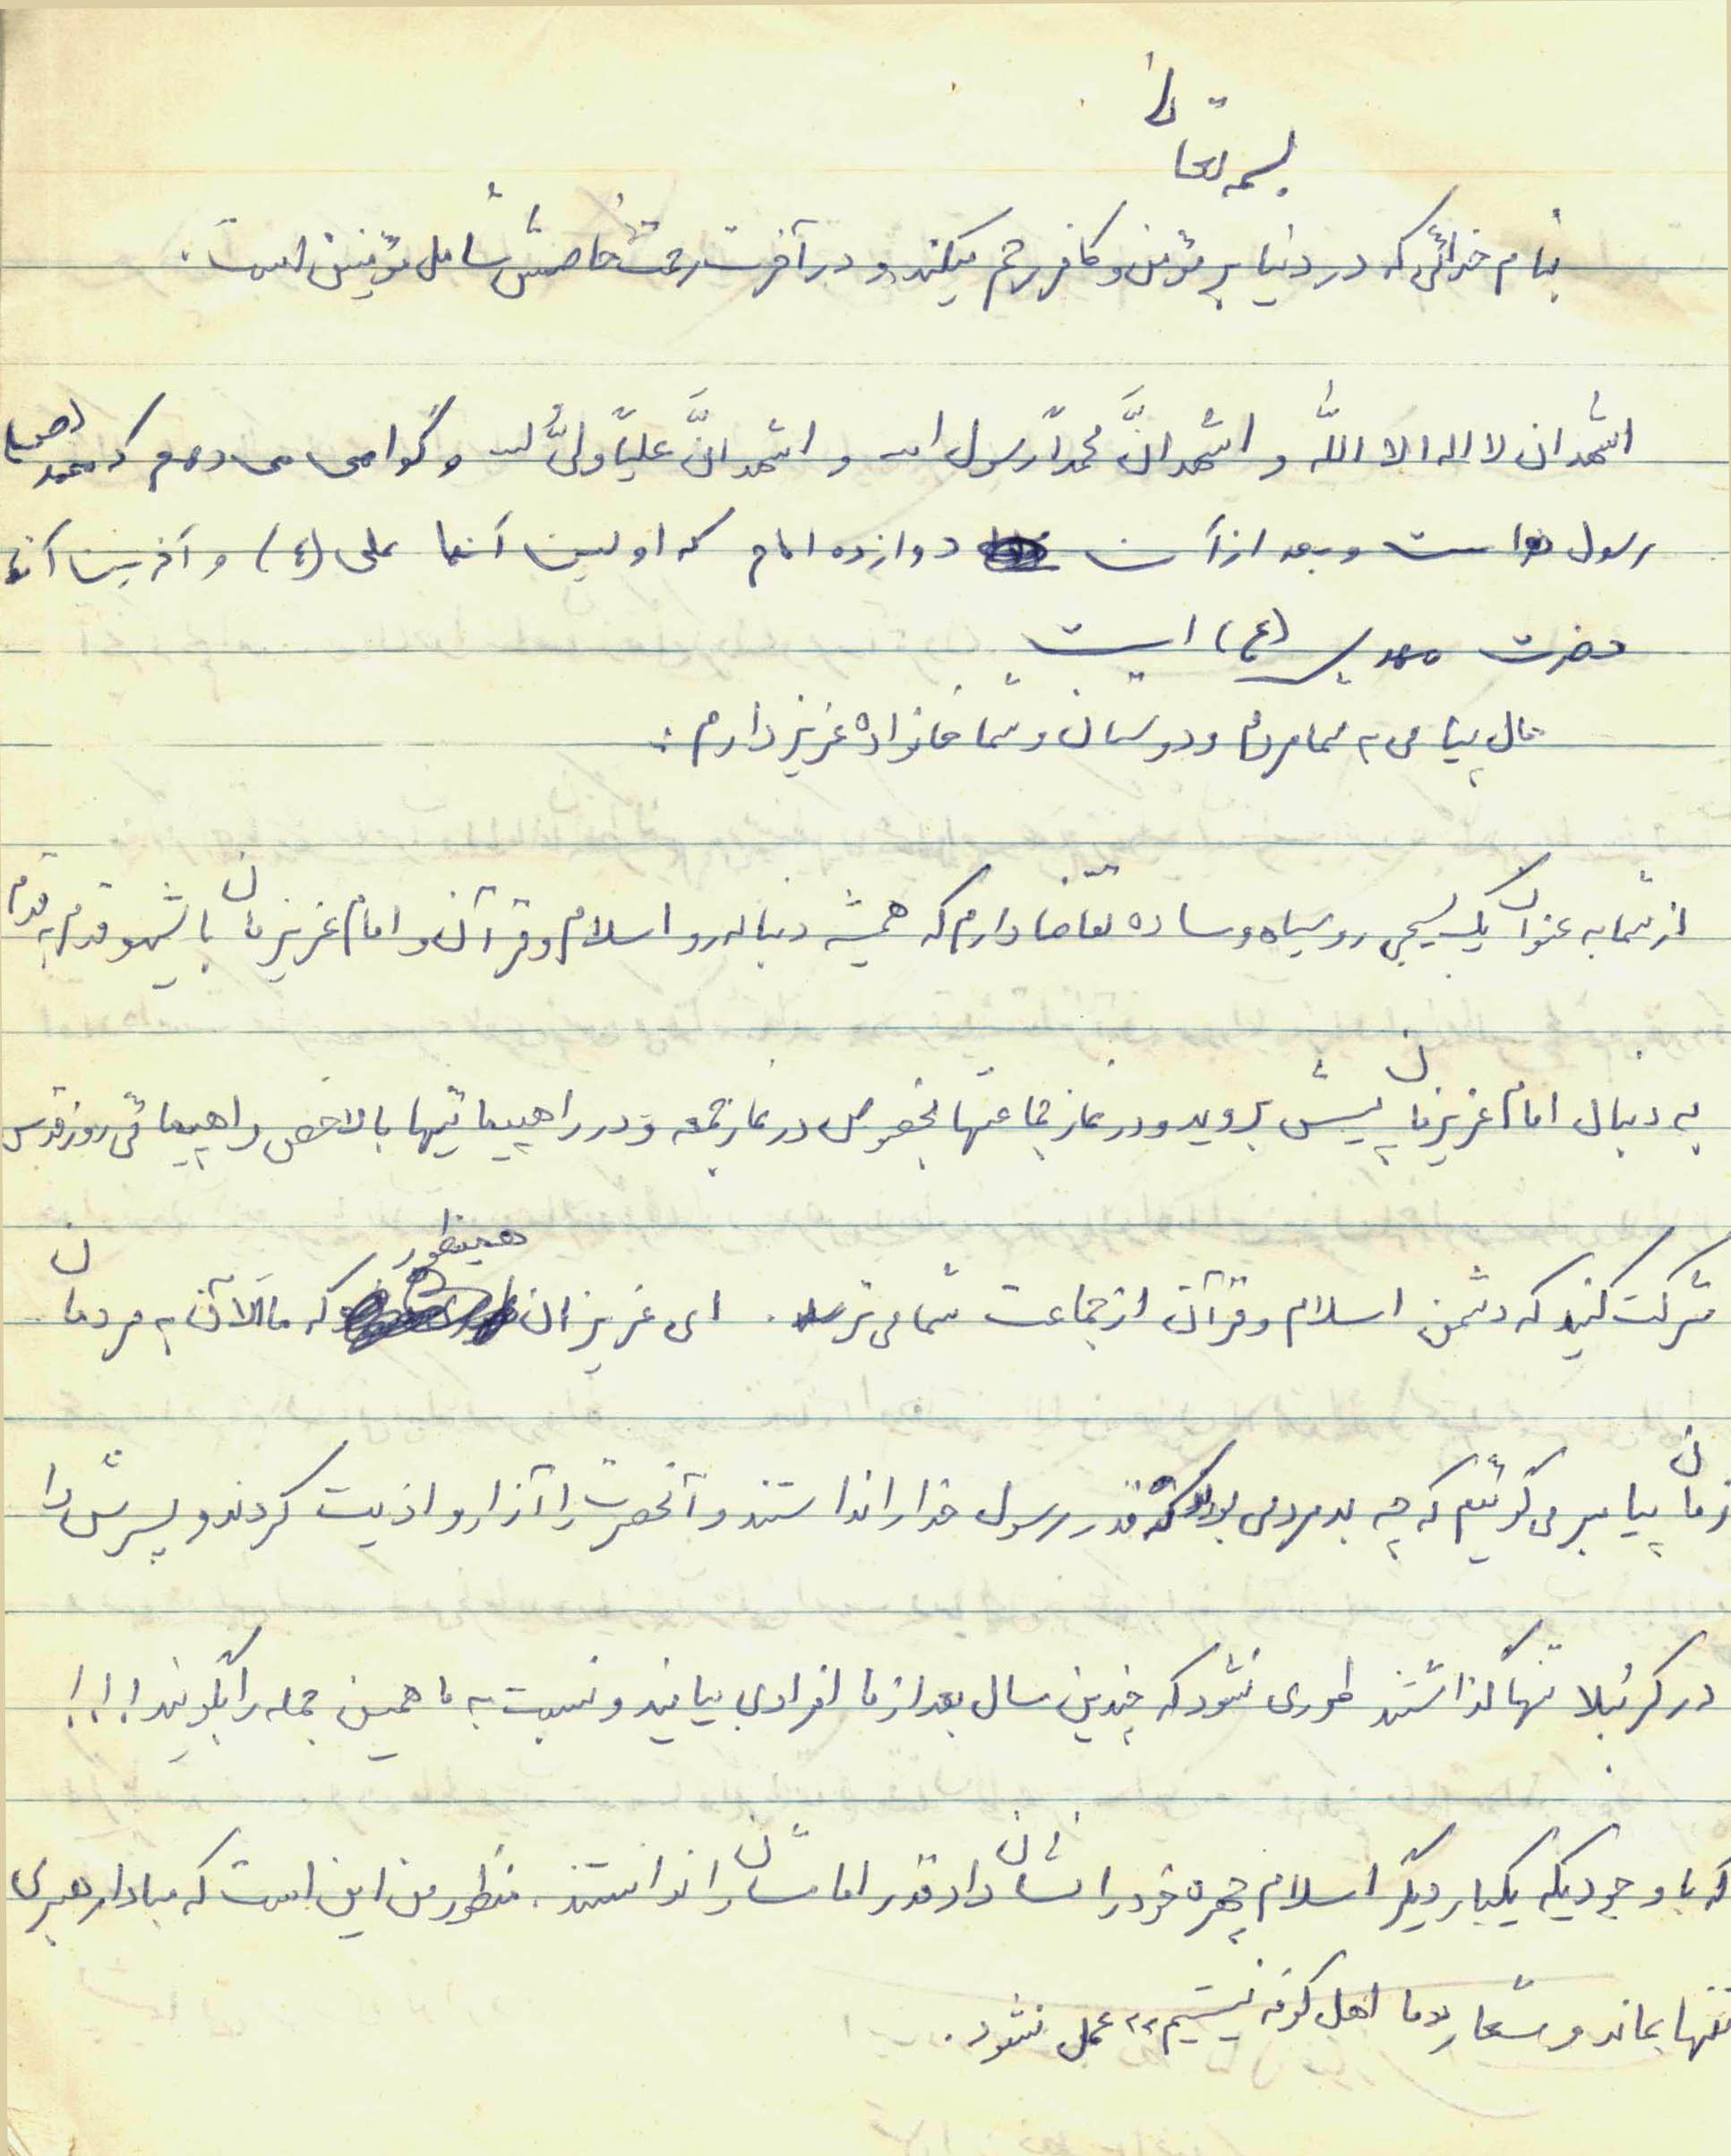 بسمه تعالی
بنام خدائی که در دنیا بر مؤمن و کافر رحم میکند و در آخرت رحمت خاصش شامل مؤمنین است.
اشهد ان لا اله الا اللّه و اشهد انَّ محمداً رسول الله و اشهد انَّ علیاً ولیُّ الله و گواهی می دهم که محمد (ص)
رسول خداست و بعد از آن دوازده امام که اولین آنها علی (ع) و آخرین آنها
حضرت مهدی (ع) است
حال پیامی به شما مردم و دوستان و شما خانواده عزیز دارم:
از شما به عنوان یک بسیجی روسیاه و ساده تقاضا دارم که همیشه دنباله رو اسلام و قرآن و امام عزیزمان باشید و قدم به قدم
به دنبال امام عزیزمان پیش بروید و در نماز جماعتها بخصوص در نماز جمعه و در راهپیمائیها بالاخص راهپیمائی روز قدس
شرکت کنید که دشمن اسلام و قرآن از جماعت شما می ترسد. ای عزیزان همینطور که ما الآن به مردمان
زمان پیامبر می گوئیم که چه بد مردمی بودند که قدر رسول خدا را نداستند و آنحضرت را آزار و اذیت کردند و پسرش را
در کربلا تنها گذاشتند طوری نشود که چندین سال بعد از ما افرادی بیایند و نسبت به ما همین جمله را بگویند!!!
که با وجودیکه یکبار دیگر اسلام چهره خود را نشان داد قدر امامشان را نداستند. منظور من این است که مبادا رهبری
تنها بماند و شعار «ما اهل کوفه نیستیم» عمل نشود.